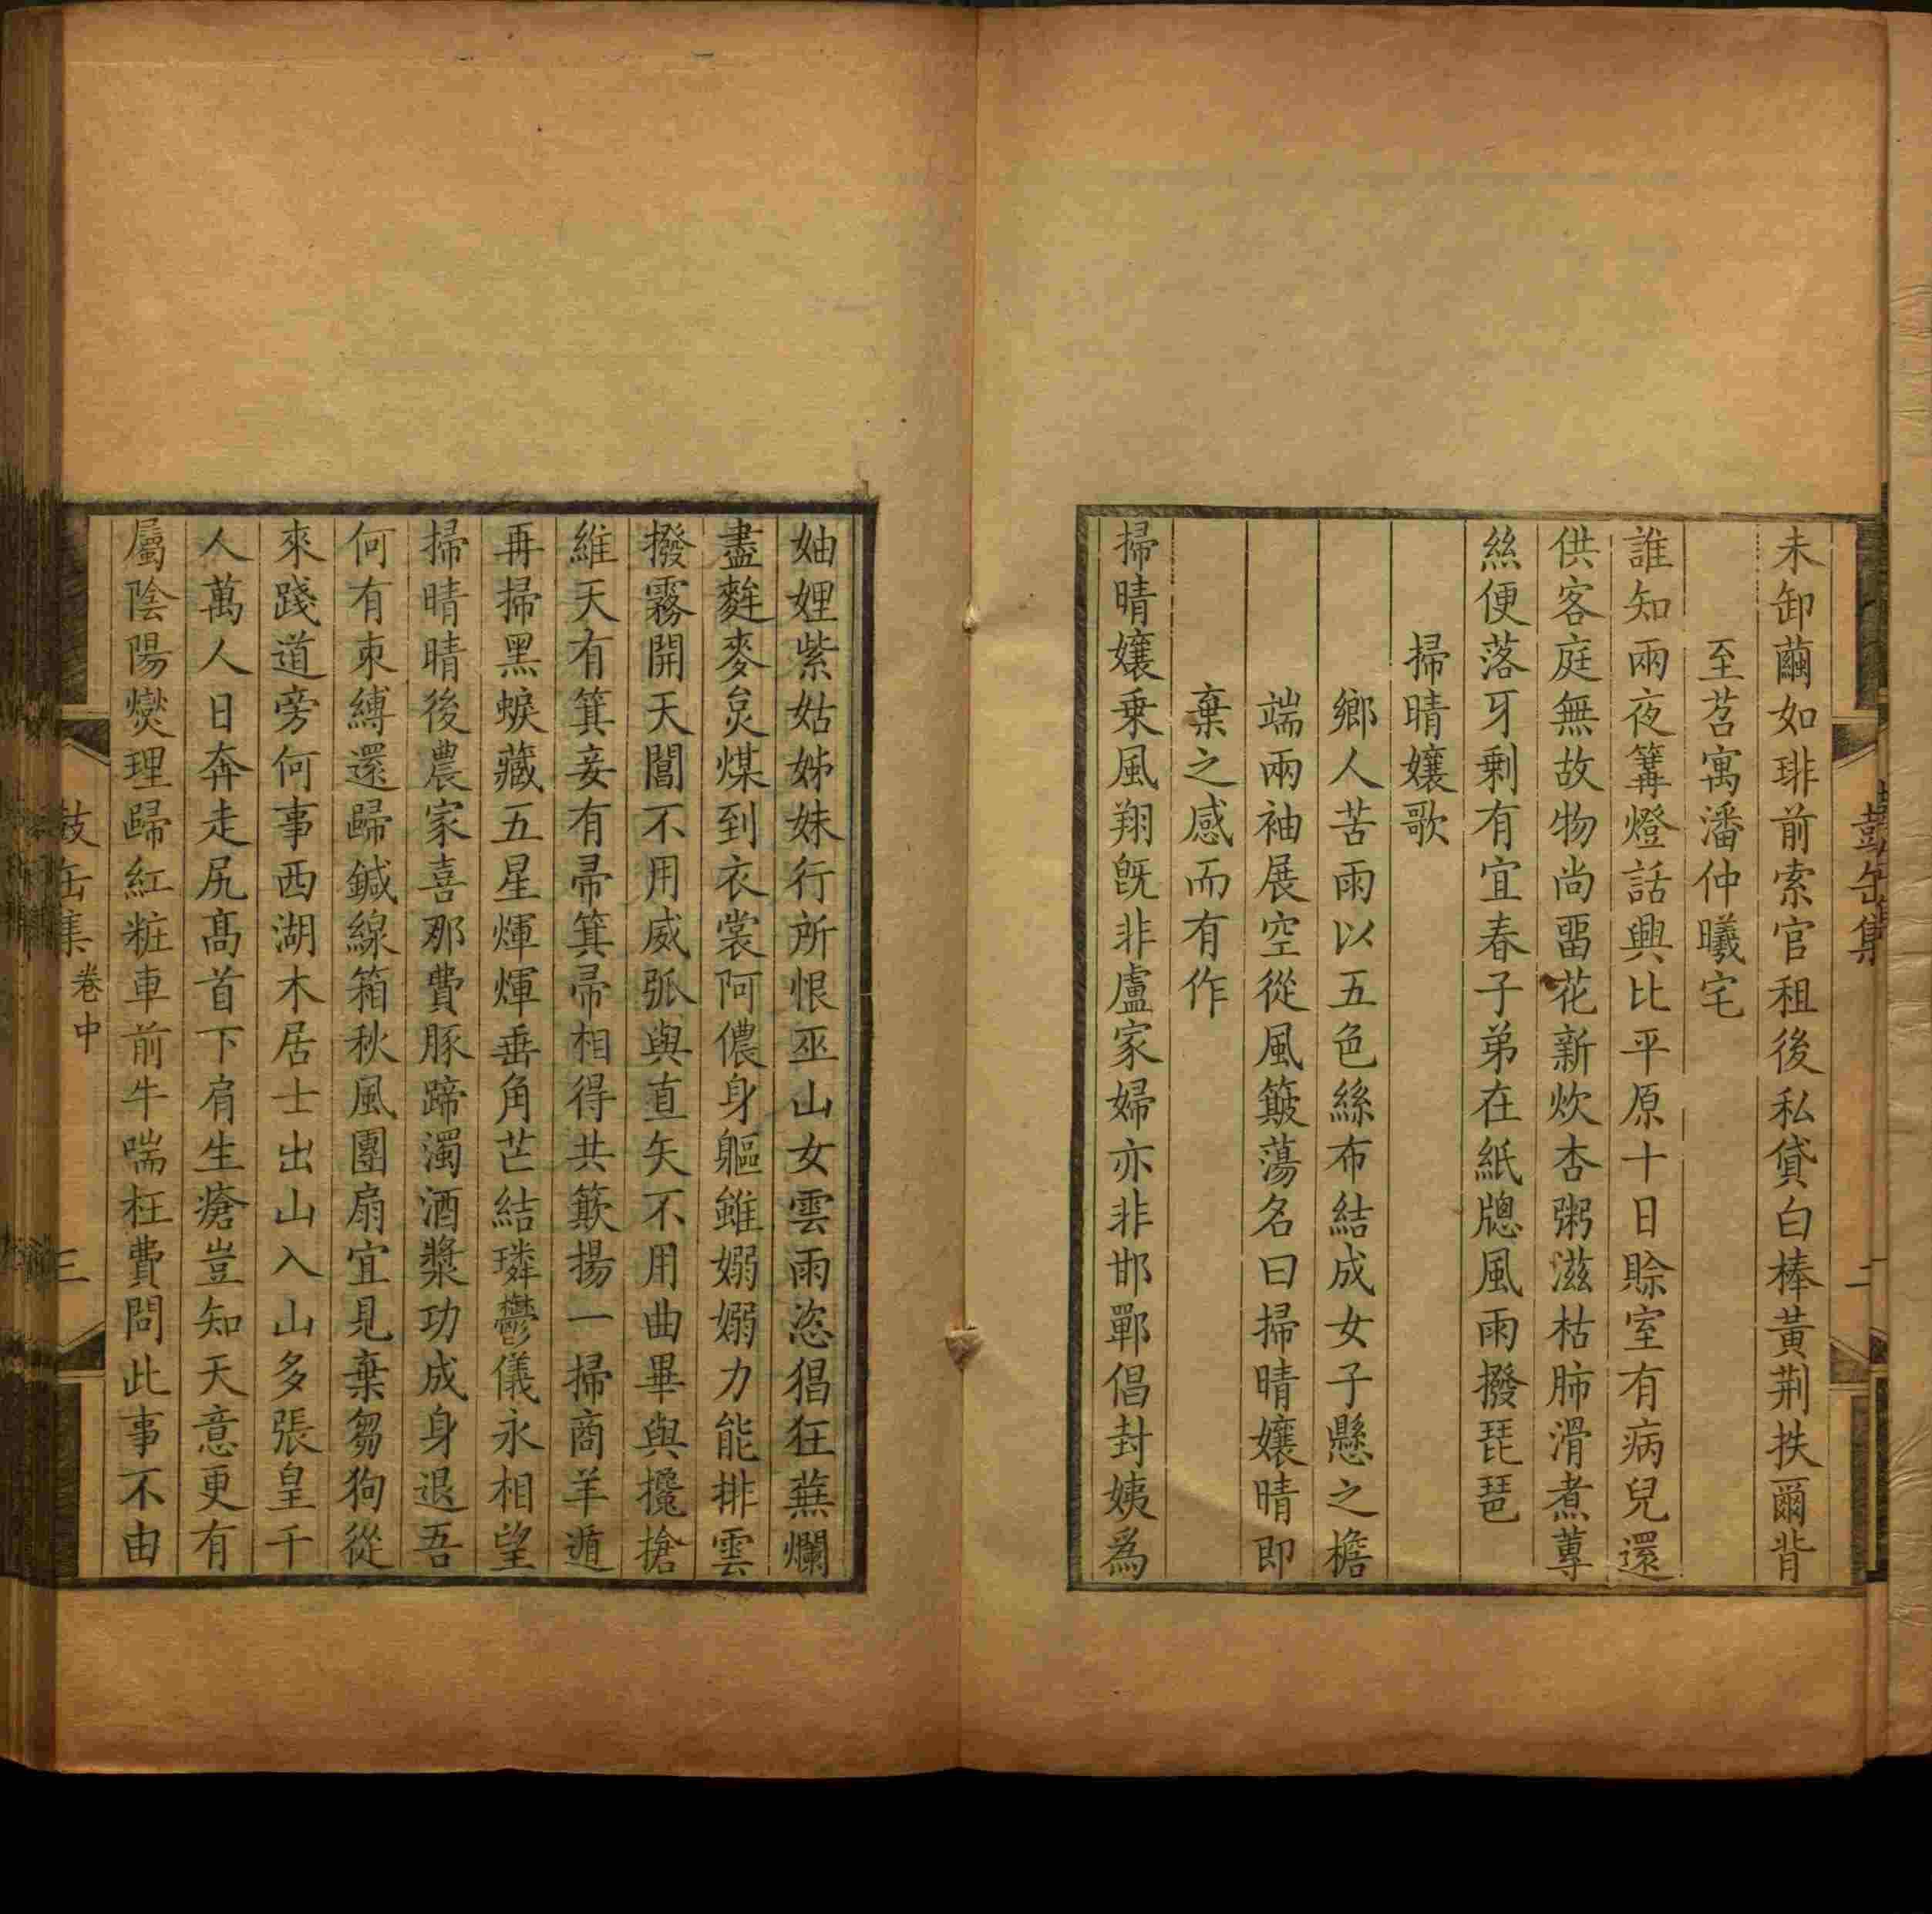 未卸繭如琲前索官租後私貸白棒黃荆抶爾背
至苕寓潘仲曦宅
誰知兩夜篝燈話興比平原十日賒室有病兒還
供客庭無故物尚畱花新炊杏粥滋枯肺滑煮蓴
絲便落牙剩有宜春子弟在紙牕風雨撥琵琶
掃晴孃歌
鄉人苦雨以五色絲布結成女子懸之檐
端兩袖展空從風簸蕩名曰掃晴孃晴即
棄之感而有作
掃晴孃乗風翔旣非盧家婦亦非邯鄲倡封姨爲
妯娌紫姑姊妹行所恨巫山女雲雨恣猖狂蕪爛
盡麰麥炱煤到衣裳阿儂身軀雖嫋嫋力能排雲
撥霧開天閶不用威弧與直矢不用曲畢與攙搶
維天有箕妾有帚箕帚相得共簸揚一掃商羊遁
再掃黑蜧藏五星煇煇垂角芒結璘鬱儀永相望
掃晴晴後農家喜那費豚蹄濁酒漿功成身退吾
何有束縛還歸鍼線箱秋風團扇宜見棄芻狗從
來踐道旁何事西湖木居士出山入山多張皇千
人萬人日奔走尻髙首下肩生瘡豈知天意更有
屬陰陽燮理歸紅粧車前牛喘枉費問此事不由
鼓缶集
卷中
三
鼓缶集
二